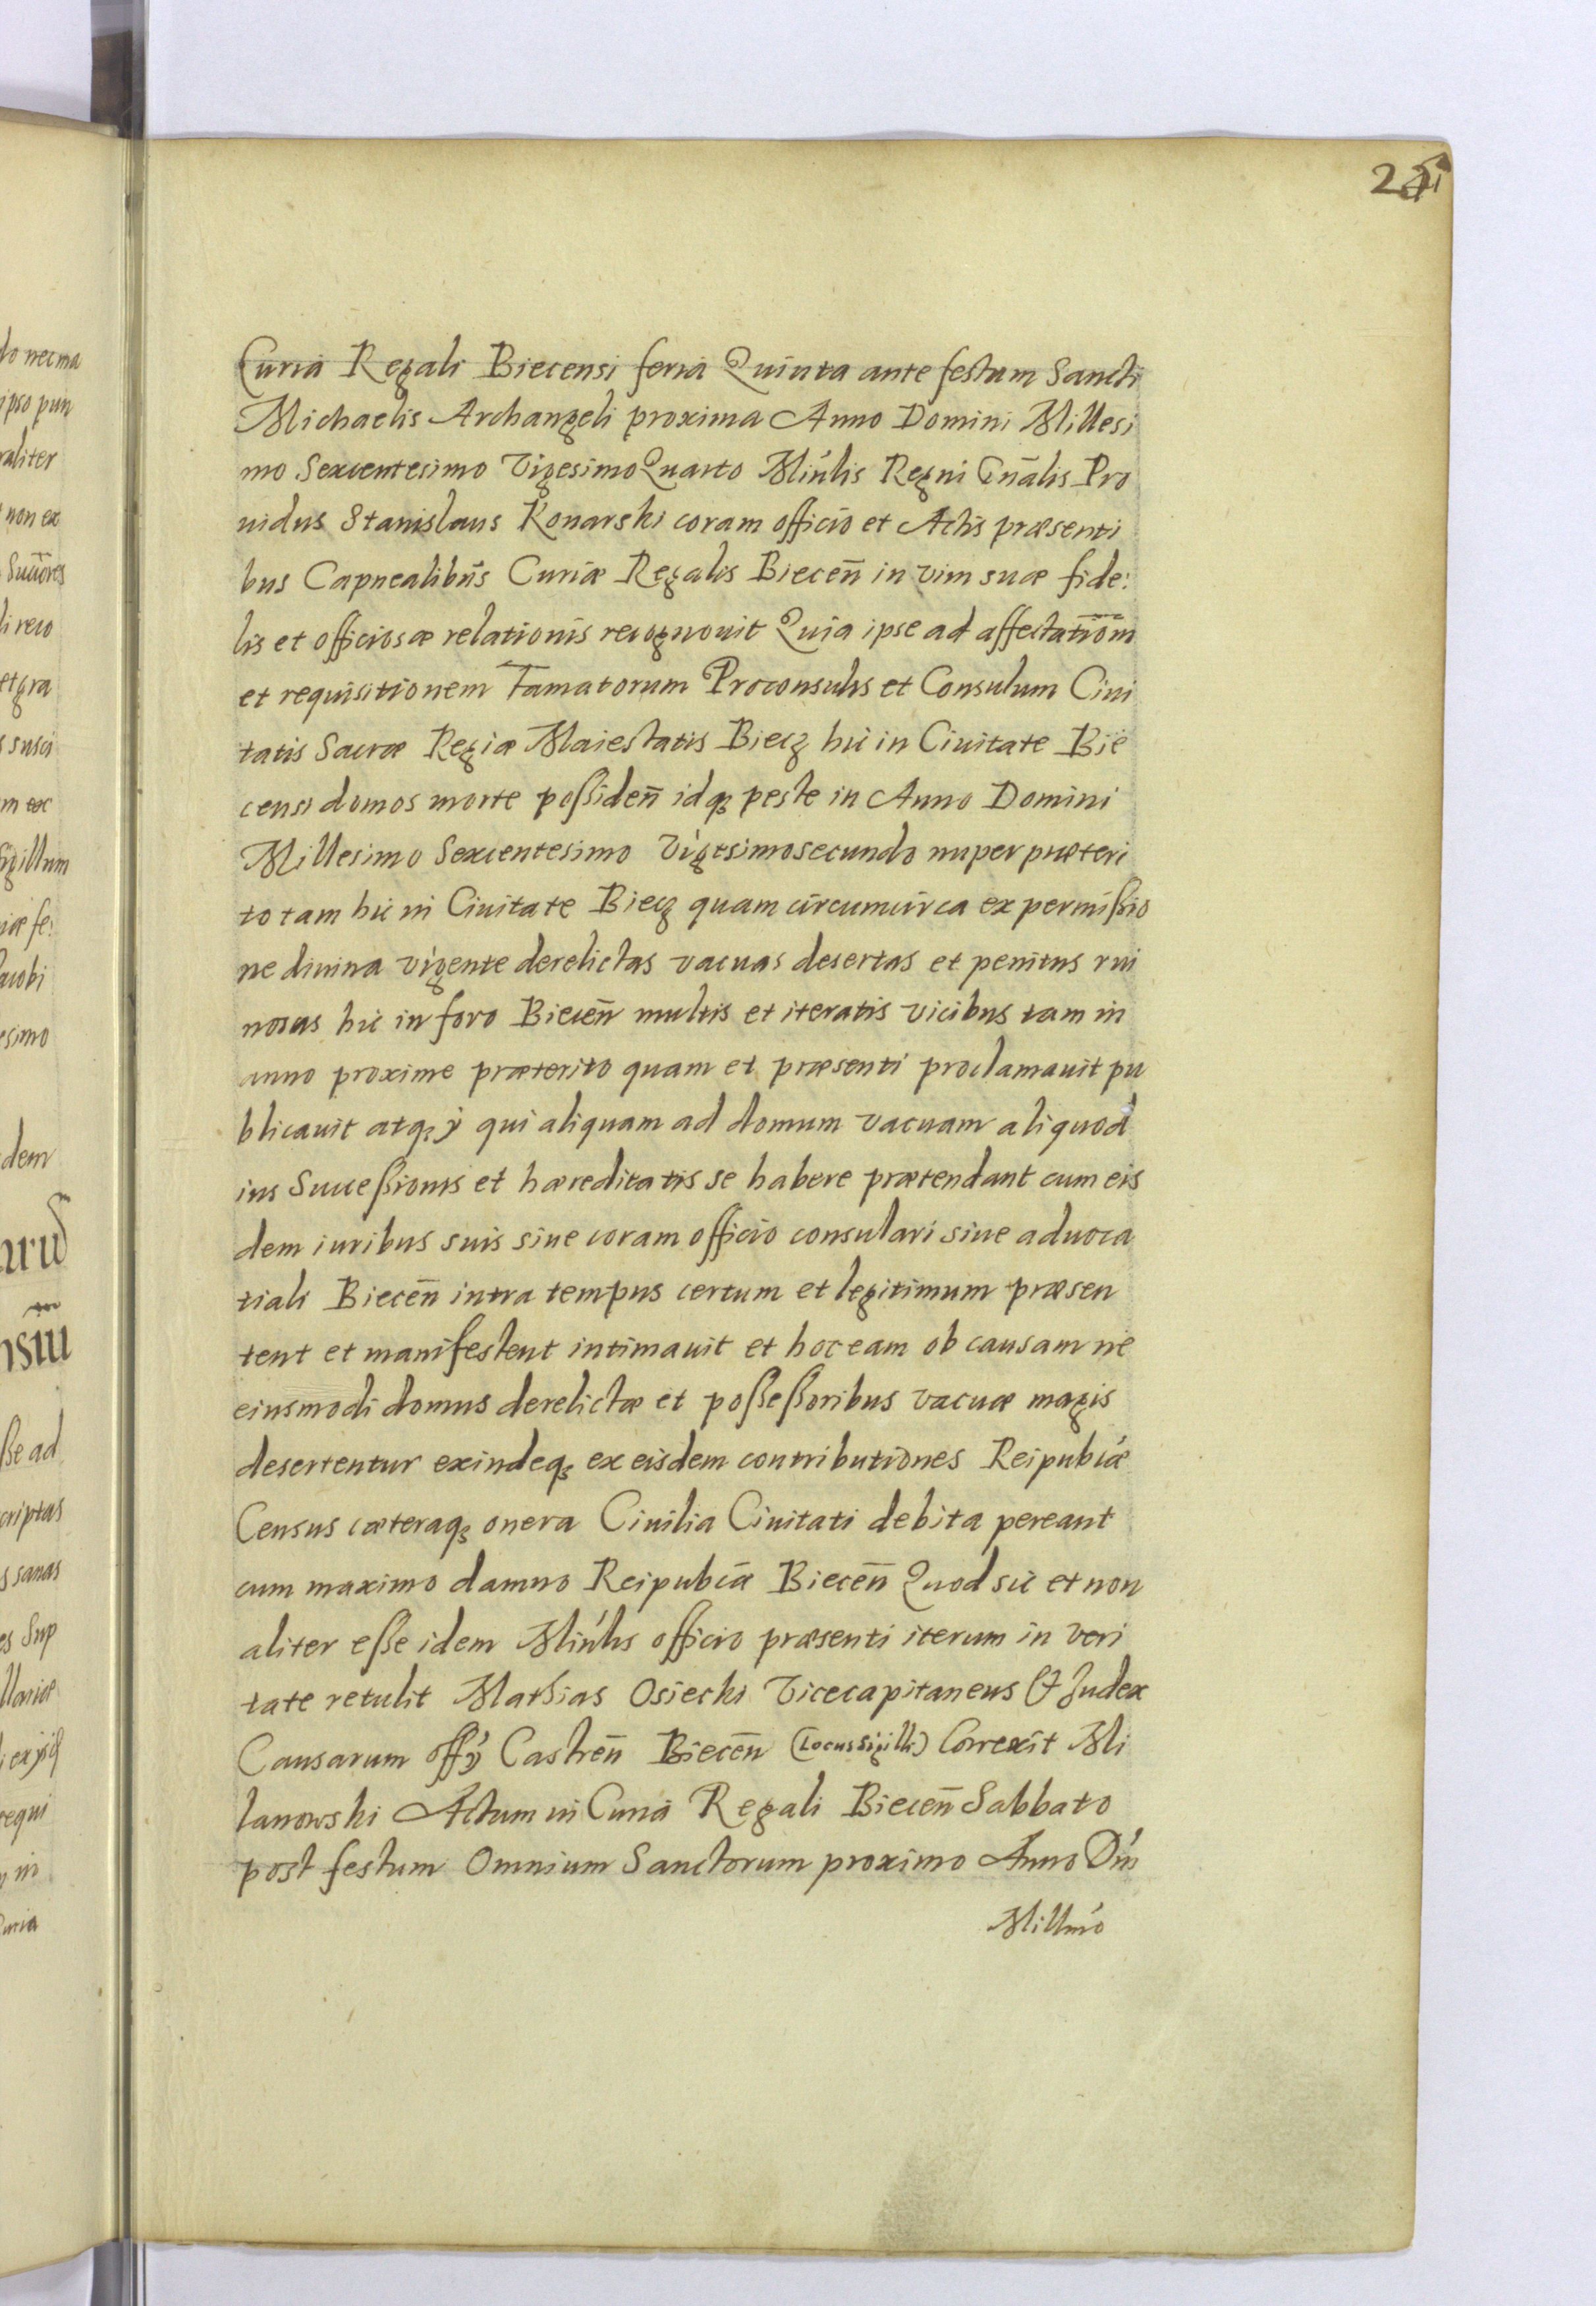 Curia Regali Biecensi feria Quinta ante festum Sancti
Michaelis Archangeli proxima Anno Domini Millesi
mo Sexcentesimo Vigesimo Quarto Min̄lis Regni Gn̄alis Pro
uidus Stanislaus Konarski coram officio et Actis præsenti
bus Capnealibus Curiæ Regalis Biecen̄ in vim suæ fide:
lis et officiosæ relationis recognouit Quia ipse ad affectatiōm
et requisitionem Famatorum Proconsulis et Consulum Ciui
tatis Sacræ Regiæ Maiestatis Biecz hic in Ciuitate Bie
censi domos morte poßiden̄ idq₃ peste in Anno Domini
Millesimo Sexcentesimo Vigesimosecundo nuper præteri
to tam hic in Ciuitate Biecz quam circumcirca ex permißio
ne diuina vigente derelictas vacuas desertas et penitus rui
nosas hic in foro Biecen̄ multis et iteratis vicibus tam in
anno proxime præterito quam et præsenti proclamauit pu
blicauit atq₃ ÿ qui aliquam ad domum vacuam aliquod
ius Succeßionis et hæreditatis se habere prætendant cum eis
dem iuribus suis siue coram officio consulari siue aduoca
tiali Biecen̄ intra tempus certum et legitimum præsen
tent et manifestent intimauit et hoc eam ob causam ne
eiusmodi domus derelictæ et poßeßoribus vacuæ magis
desertentur exindeq₃ ex eisdem contributiones Reipub́cæ
Census cæteraq₃ onera Ciuilia Ciuitati debita pereant
cum maximo damno Reipub́cæ Biecen̄ Quod sic et non
aliter eße idem Min̄lis officio præsenti iterum in veri
tate retulit Mathias Osiecki Vicecapitaneus & Judex
Causarum offÿ Castren̄ Biecen̄ (Locus Sigilli) Correxit Mi
lanowski Actum in Curia Regali Biecen̄ Sabbato
post festum Omnium Sanctorum proximo Anno Dn̄i
Millmó